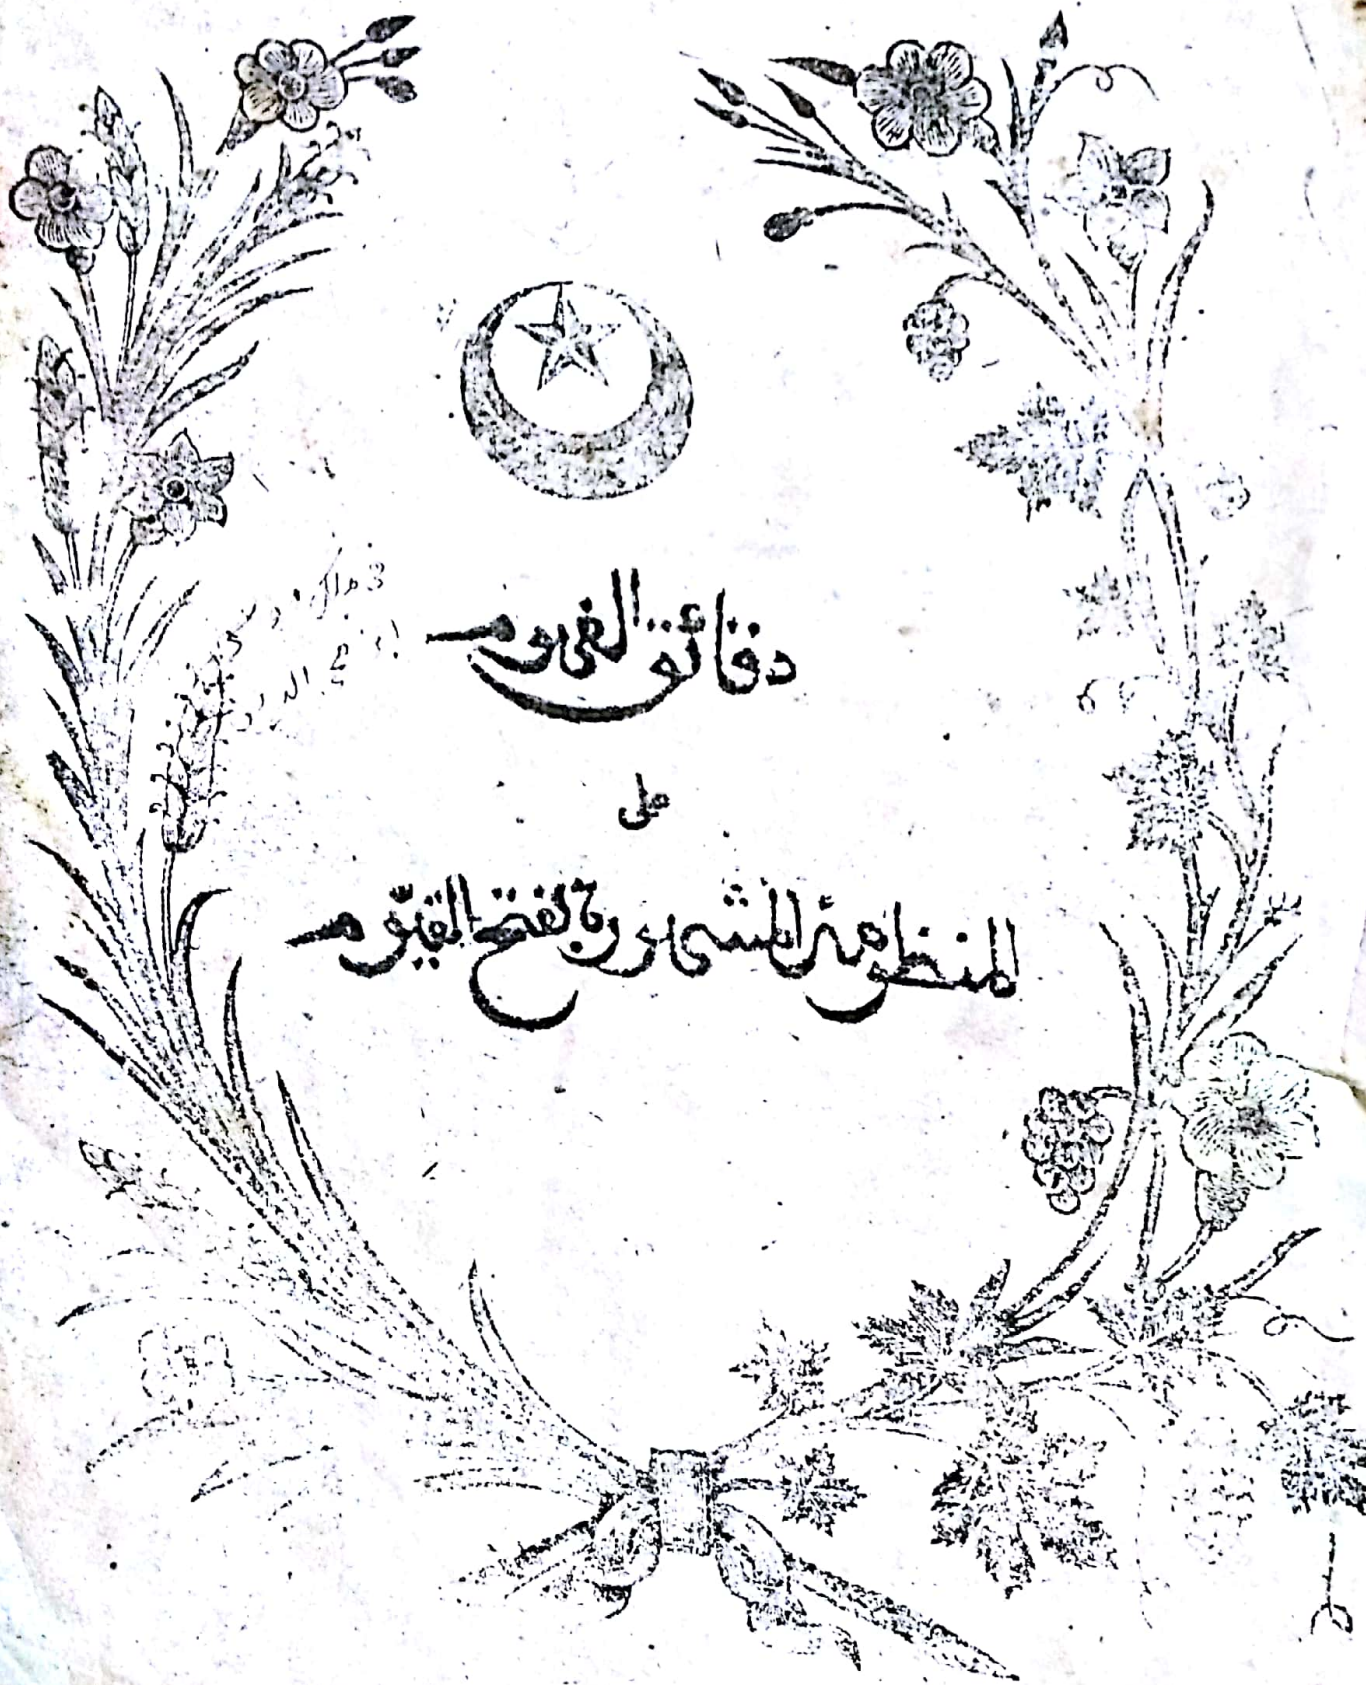 دقائق الفهوم
على
المنظومة المشهورة بفتح القيّوم